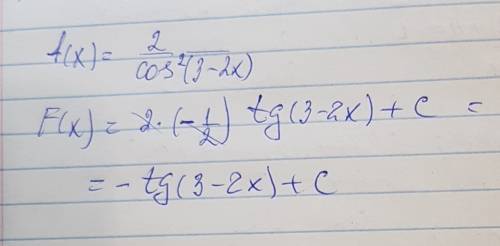 f(x) = 2 / cos²(3-2x)
F(x) = 2·(-1/2) tg(3-2x) + C =
= - tg(3-2x) + C